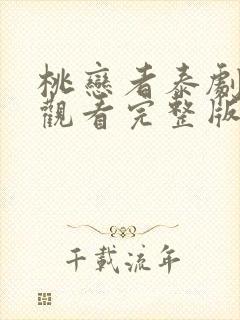 桃戀者泰劇
觀看完整版
千載流年